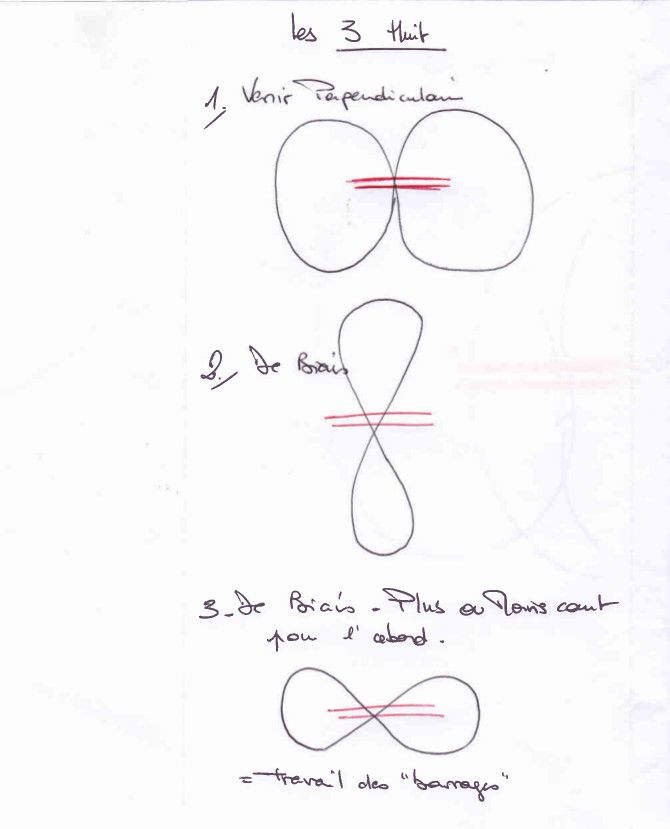 les 3 Huit
1. Venir Perpendiculaire
2. De Biais
3 - De Biais - Plus ou Moins court
pour l'abord.
= travail des "barrages"